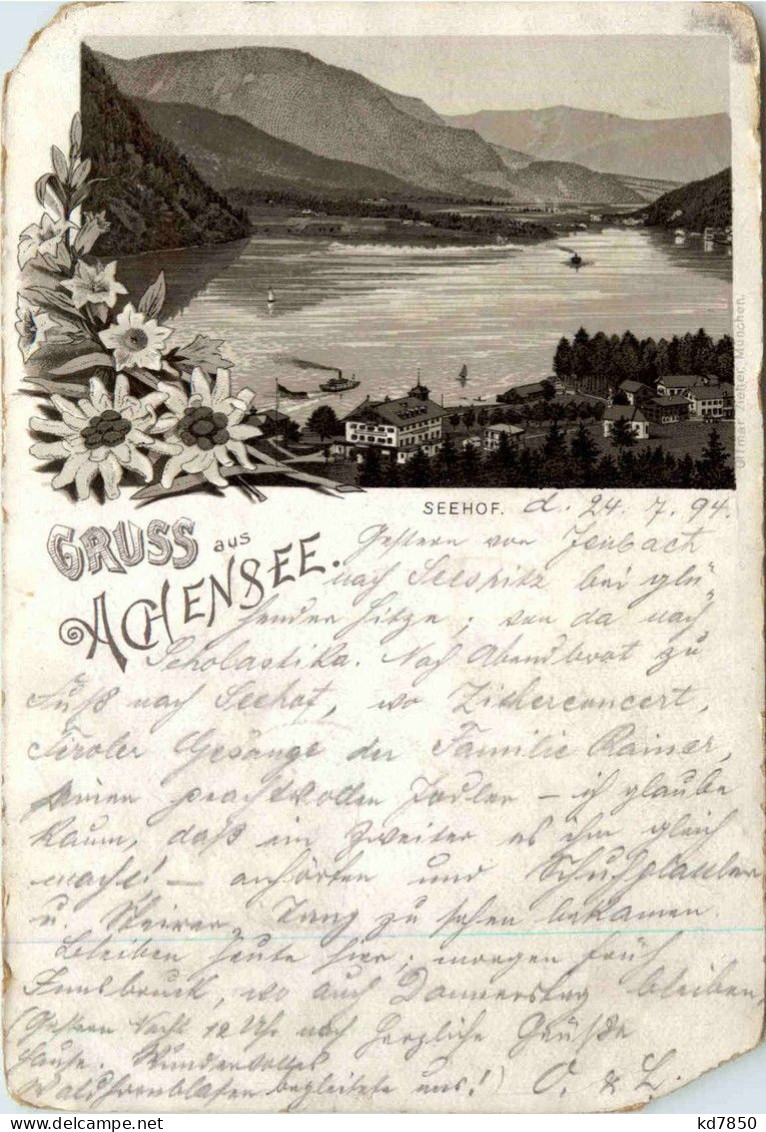 Ottmar Zieher, München.
SEEHOF. d. 24. 7. 94.
GRUSS aus
ACHENSEE.
Gestern von Jenbach
nach Seespitz bei glü-
hender Hitze; von da nach
Scholastika. Nach Abendbrot zu
Fuß nach Seehof, wo Zitherconcert,
Tiroler Gesänge der Familie Rainer,
einen prachtvollen Jodler – ich glaube
kaum, daß ein Zweiter es ihm gleich
macht! – anhörten und Schuhplattler
u. Steirer Tanz zu sehen bekamen.
Bleiben heute hier; morgen früh
Innsbruck, wo auch Donnerstag bleiben.
(Gestern Nacht 12 Uhr nach Herzliche Grüße
Hause. Wundervolles
Waldhornblasen begleitete uns!) O. & L.
kd7850